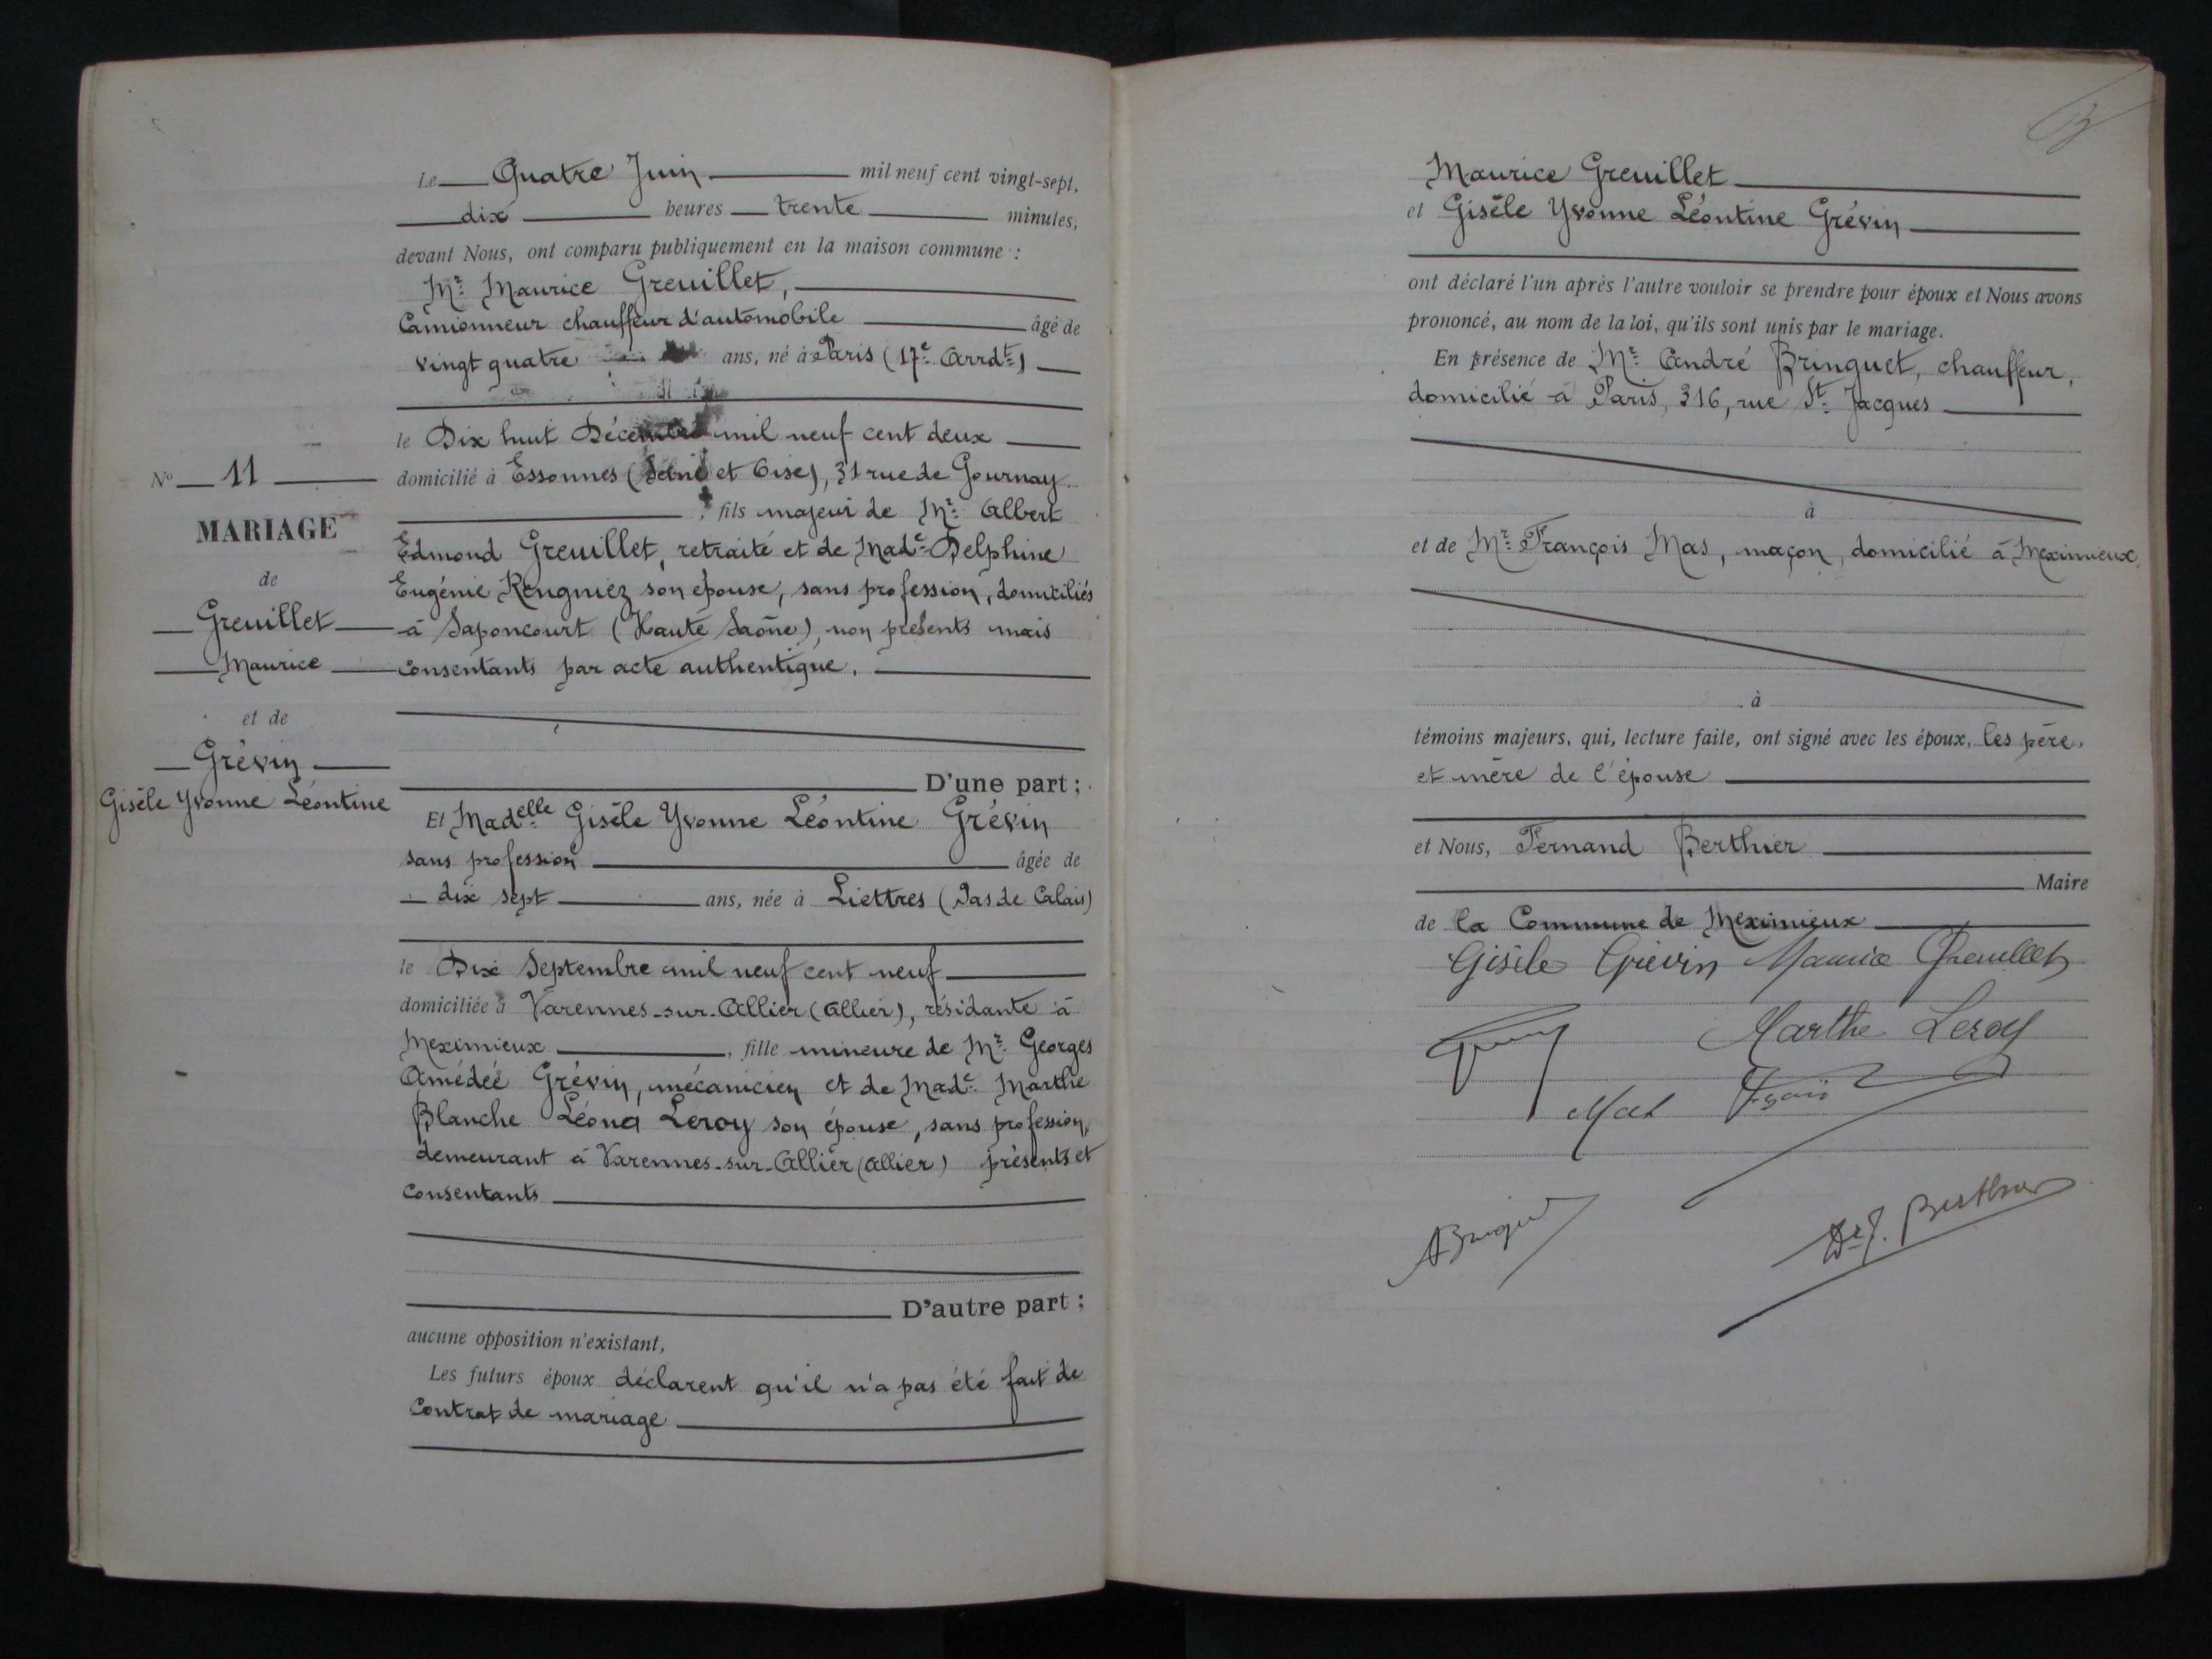 Le Quatre Juin mil neuf cent vingt-sept,
dix heures trente minutes,
devant Nous, ont comparu publiquement en la maison commune :
Mr Maurice Greuillet,
Camionneur chauffeur d'automobile âgé de
vingt quatre ans, né à Paris (17e Arrdt)
le Dix huit Décembre mil neuf cent deux
domicilié à Essonnes (Seine et Oise), 31 rue de Gournay
, fils majeur de Mr Albert
Edmond Greuillet, retraité et de Made Delphine
Eugénie Rengniez son épouse, sans profession, domiciliés
à Saponcourt (Haute Saône), non présents mais
consentants par acte authentique.
D'une part ;
Nº 11
MARIAGE
de
Greuillet
Maurice
et de
Grévin
Gisèle Yvonne Léontine
Et Madelle Gisèle Yvonne Léontine Grévin
sans profession âgée de
dix sept ans, née à Liettres (Pas de Calais)
le Dix Septembre mil neuf cent neuf
domiciliée à Varennes-sur-Allier (Allier), résidante à
Meximieux, fille mineure de Mr Georges
Amédée Grévin, mécanicien et de Made Marthe
Blanche Léona Leroy son épouse, sans profession,
demeurant à Varennes-sur-Allier (Allier) présents et
consentants
D'autre part ;
aucune opposition n'existant,
Les futurs époux déclarent qu'il n'a pas été fait de
Contrat de mariage
Maurice Greuillet
et Gisèle Yvonne Léontine Grévin
ont déclaré l'un après l'autre vouloir se prendre pour époux et Nous avons
prononcé, au nom de la loi, qu'ils sont unis par le mariage.
En présence de Mr André Bringuet, chauffeur,
domicilié à Paris, 316, rue St Jacques
à
et de Mr François Mas, maçon, domicilié à Meximieux,
à
témoins majeurs, qui, lecture faite, ont signé avec les époux, les père,
et mère de l'épouse
et Nous, Fernand Berthier
Maire
de la Commune de Meximieux
Gisèle Grévin Maurice Greuillet
Marthe Leroy
Mas
Berthier